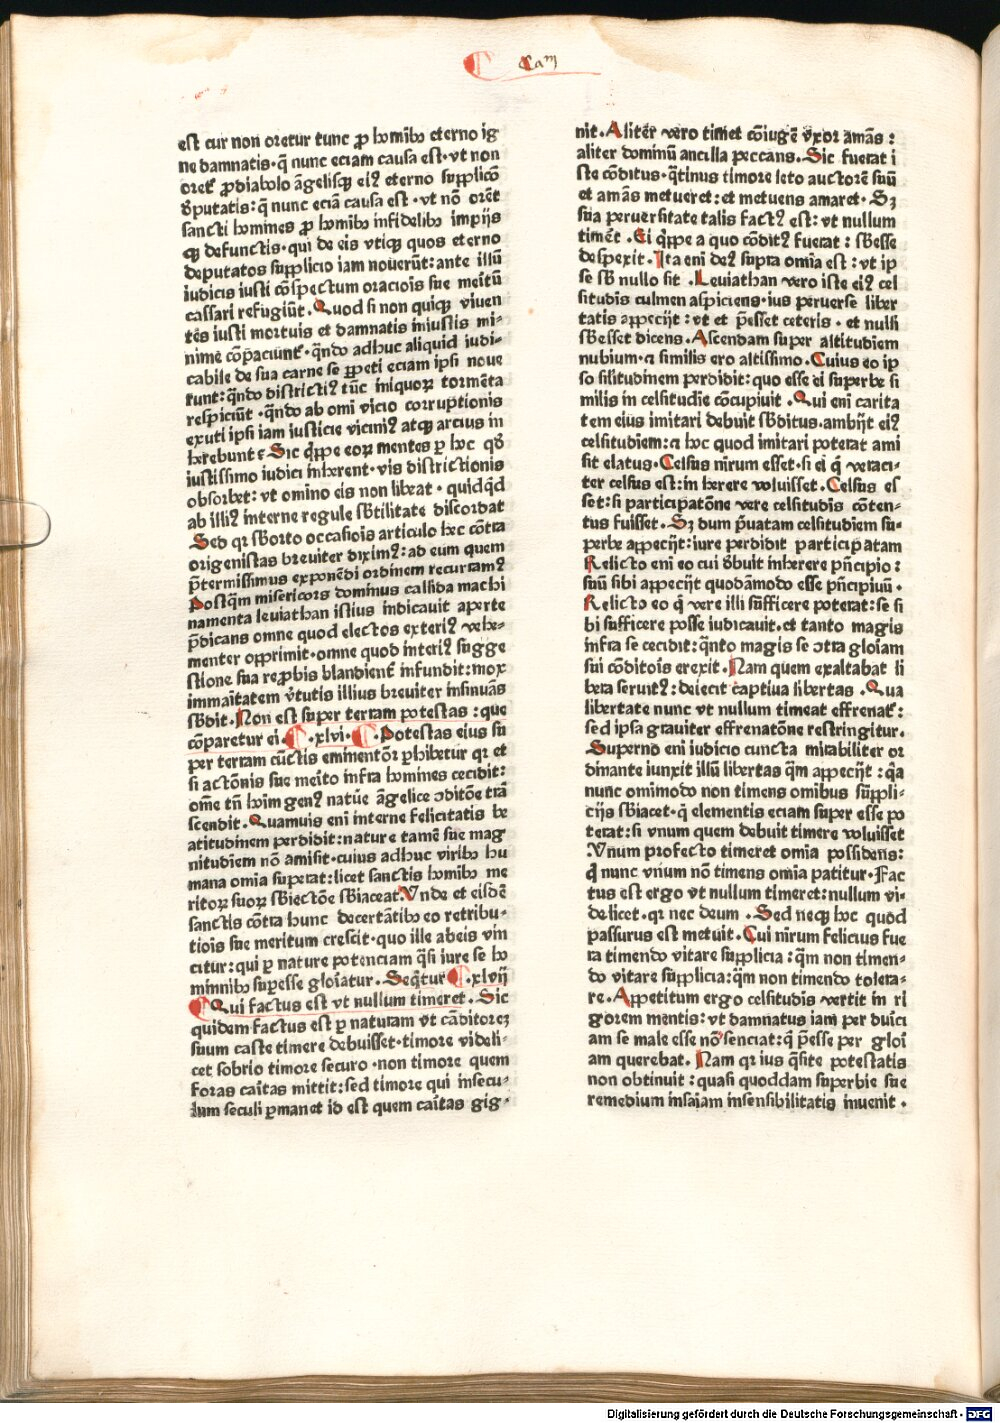 Cam
est cur non oretur tunc ꝓ hoĩbꝰ eterno ig
ne damnatis·q̃ nunc eciam causa est·vt non
oret̃ ꝓdiabolo ãgelisqꝫ eiꝰ eterno supplicõ
ꝺputatis:q̃ nunc eciã causa est·vt nõ orẽt
sancti homines ꝓ hoĩbꝰ infidelibꝰ impijs
qꝫ defunctis·qui de eis vtiqꝫ quos eterno
deputatos supplicio iam nouerũt:ante illũ
iudicis iusti cõspectum oracõis sue meritũ
cassari refugiũt·Quod si non quiqꝫ viuen
tes iusti mortuis et damnatis iniustis mi-
nime cõpaciunt̃·qñdo adhuc aliquid iudi-
cabile de sua carne se ꝑpeti eciam ipsi noue
runt:qñdo districtiꝰ tũc iniquoꝝ tormẽta
respiciũt·qñdo ab omi vicio corruptionis
exuti ipsi iam iusticie viciniꝰ atqꝫ arcius in
herebunt? Sic q̃ppe eoꝝ mentes ꝑ hoc qꝺ
iustissimo iudici inherent·vis districtionis
obsorbet:vt omino eis non libeat·quidq̃d
ab illiꝰ interne regule sꝺtilitate discordat
Sed qr sꝺorto occasiõis articulo hec cõtra
origenistas breuiter diximꝰ:ad eum quem
p̃termissimus exponẽdi ordinem recurramꝰ
Postq̃m misericors dominus callida machi
namenta leuiathan istius indicauit aperte
p̃dicans omne quod electos exteriꝰ vehe-
menter opprimit·omne quod interiꝰ sugge
stione sua reprobis blandient̃ infundit:mox
immaĩtatem ꝟtutis illius breuiter insinuãs
sꝺdit·Non est super terram potestas:que
cõparetur ei.¶.xlvi.¶.Potestas eius su
per terram cũctis eminentoꝛ ꝓhibetur qr et
si actõnis sue meĩto infra homines cecidit:
ome tñ hoim genꝰ natũe ãgelice ɔditõe trã
scendit·Quamuis eni interne felicitatis be
atitudinem perdidit:nature tamẽ sue mag
nitudiem nõ amisit·cuius adhuc viribꝰ hu
mana omia superat:licet sanctis hoĩbꝰ me
ritoꝝ suoꝝ sꝺiectõe sꝺiaceat.Vnde et eisdẽ
sanctis cõtra hunc decertãtibꝰ eo retribu-
tiõis sue meritum crescit·quo ille abeis vin
citur:qui ꝑ nature potenciam q̃si iure se ho
minibꝰ supesse gloĩatur·Seq̃tur¶.xlvij
¶Qui factus est vt nullum timeret·Sic
quidem factus est ꝑ naturam vt cõditoreꝫ
suum caste timere debuisset·timore videli-
cet sobrio timore securo·non timore quem
foras caĩtas mittit:sed timore qui insecu-
lum seculi ꝑmanet id est quem caĩtas gig-
nit·Aliter vero timet cõiugẽ vxor amãs:
aliter dominũ ancilla peccans·Sic fuerat i
ste cõditus·q̃tinus timore leto auctorẽ suũ
et amãs metueret:et metuens amaret·Sꝫ
sua peruersitate talis factꝰ est:vt nullum
timẽt·Ei q̃ppe a quo cõditꝰ fuerat:sꝺesse
despexit·Ita eni deꝰ supra omia est:vt ip
se sꝺ nullo sit·Leuiathan vero iste eiꝰ cel
situdis culmen aspiciens·ius peruerse liber
tatis appecijt:vt et p̃esset ceteris·et nulli
sꝺesset dicens·Ascendam super altitudiem
nubium·⁊ similis ero altissimo·Cuius eo ip
so silitudinem perdidit:quo esse ei superbe si
milis in celsitudie cõcupiuit·Qui eni carita
tem eius imitari debuit sꝺditus·ambijt eiꝰ
celsitudiem:⁊ hoc quod imitari poterat ami
sit elatus·Celsus nirum esset·si ei q̃ veraci-
ter celsus est:inherere voluisset·Celsus es
set:si participatõne vere celsitudis cõten-
tus fuisset·Sꝫ dum p̃uatam celsitudiem su-
perbe appecijt:iure perdidit participatam
Relicto eni eo cui ꝺbuit inherere p̃ncipio:
suũ sibi appecijt quodãmodo esse p̃ncipiuũ·
Relicto eo q̃ vere illi sufficere poterat:se si
bi sufficere posse iudicauit·et tanto magis
infra se cecidit:q̃nto magis se ɔtra gloĩam
sui cõditoĩs erexit·Nam quem exaltabat li
bera seruitꝰ:deiecit captiua libertas·Qua
libertate nunc vt nullum timeat effrenat̃:
sed ipsa grauiter effrenatõne restringitur·
Superno eni iudicio cuncta mirabiliter or
dinante iunxit illũ libertas q̃m appecijt:q̃a
nunc omimodo non timens omibus suppli-
cijs sꝺiacet·q̃ elementis eciam super esse po
terat:si vnum quem debuit timere voluisset
Vnum profecto timeret omia possidens:
q̃ nunc vnum nõ timens omia patitur·Fac
tus est ergo vt nullum timeret:nullum vi-
delicet·qr nec deum·Sed neqꝫ hoc quod
passurus est metuit·Cui nirum felicius fue
ra timendo vitare supplicia:q̃m non timen-
do vitare supplicia:q̃m non timendo tolera-
re·Appetitum ergo celsitudis vertit in ri
gorem mentis:vt damnatus iam per duĩci
am se male esse nõ senciat:q̃ p̃esse per gloĩ
am querebat·Nam qr ius q̃site potestatis
non obtinuit:quasi quoddam superbie sue
remedium insaĩam insensibilitatis inuenit·
Digitalisierung gefördert durch die Deutsche Forschungsgemeinschaft - DFG